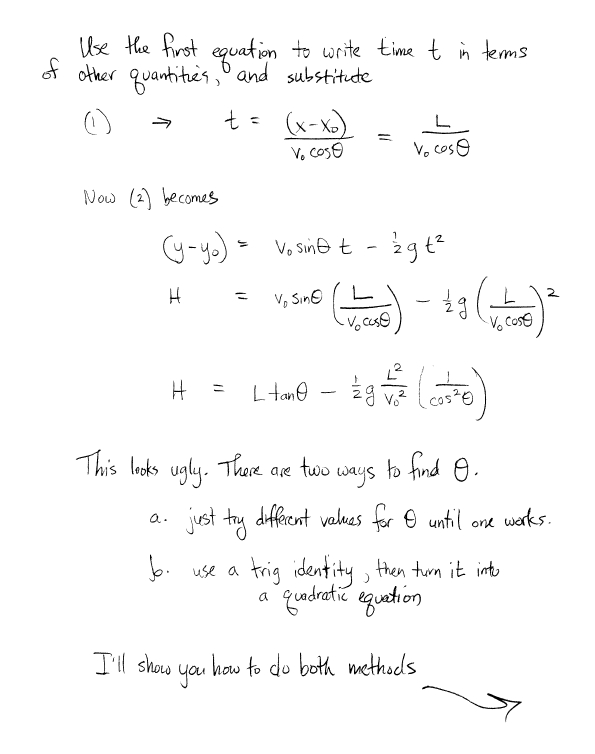 Use the first equation to write time t in terms
of other quantities, and substitute
(1) → t = (x-x₀)/(v₀ cosθ) = L/(v₀ cosθ)
Now (2) becomes
(y-y₀) = v₀ sinθ t - ½ g t²
H = v₀ sinθ (L/(v₀ cosθ)) - ½ g (L/(v₀ cosθ))²
H = L tanθ - ½ g L²/v₀² (1/cos²θ)
This looks ugly. There are two ways to find θ.
a. just try different values for θ until one works.
b. use a trig identity, then turn it into
a quadratic equation
I'll show you how to do both methods